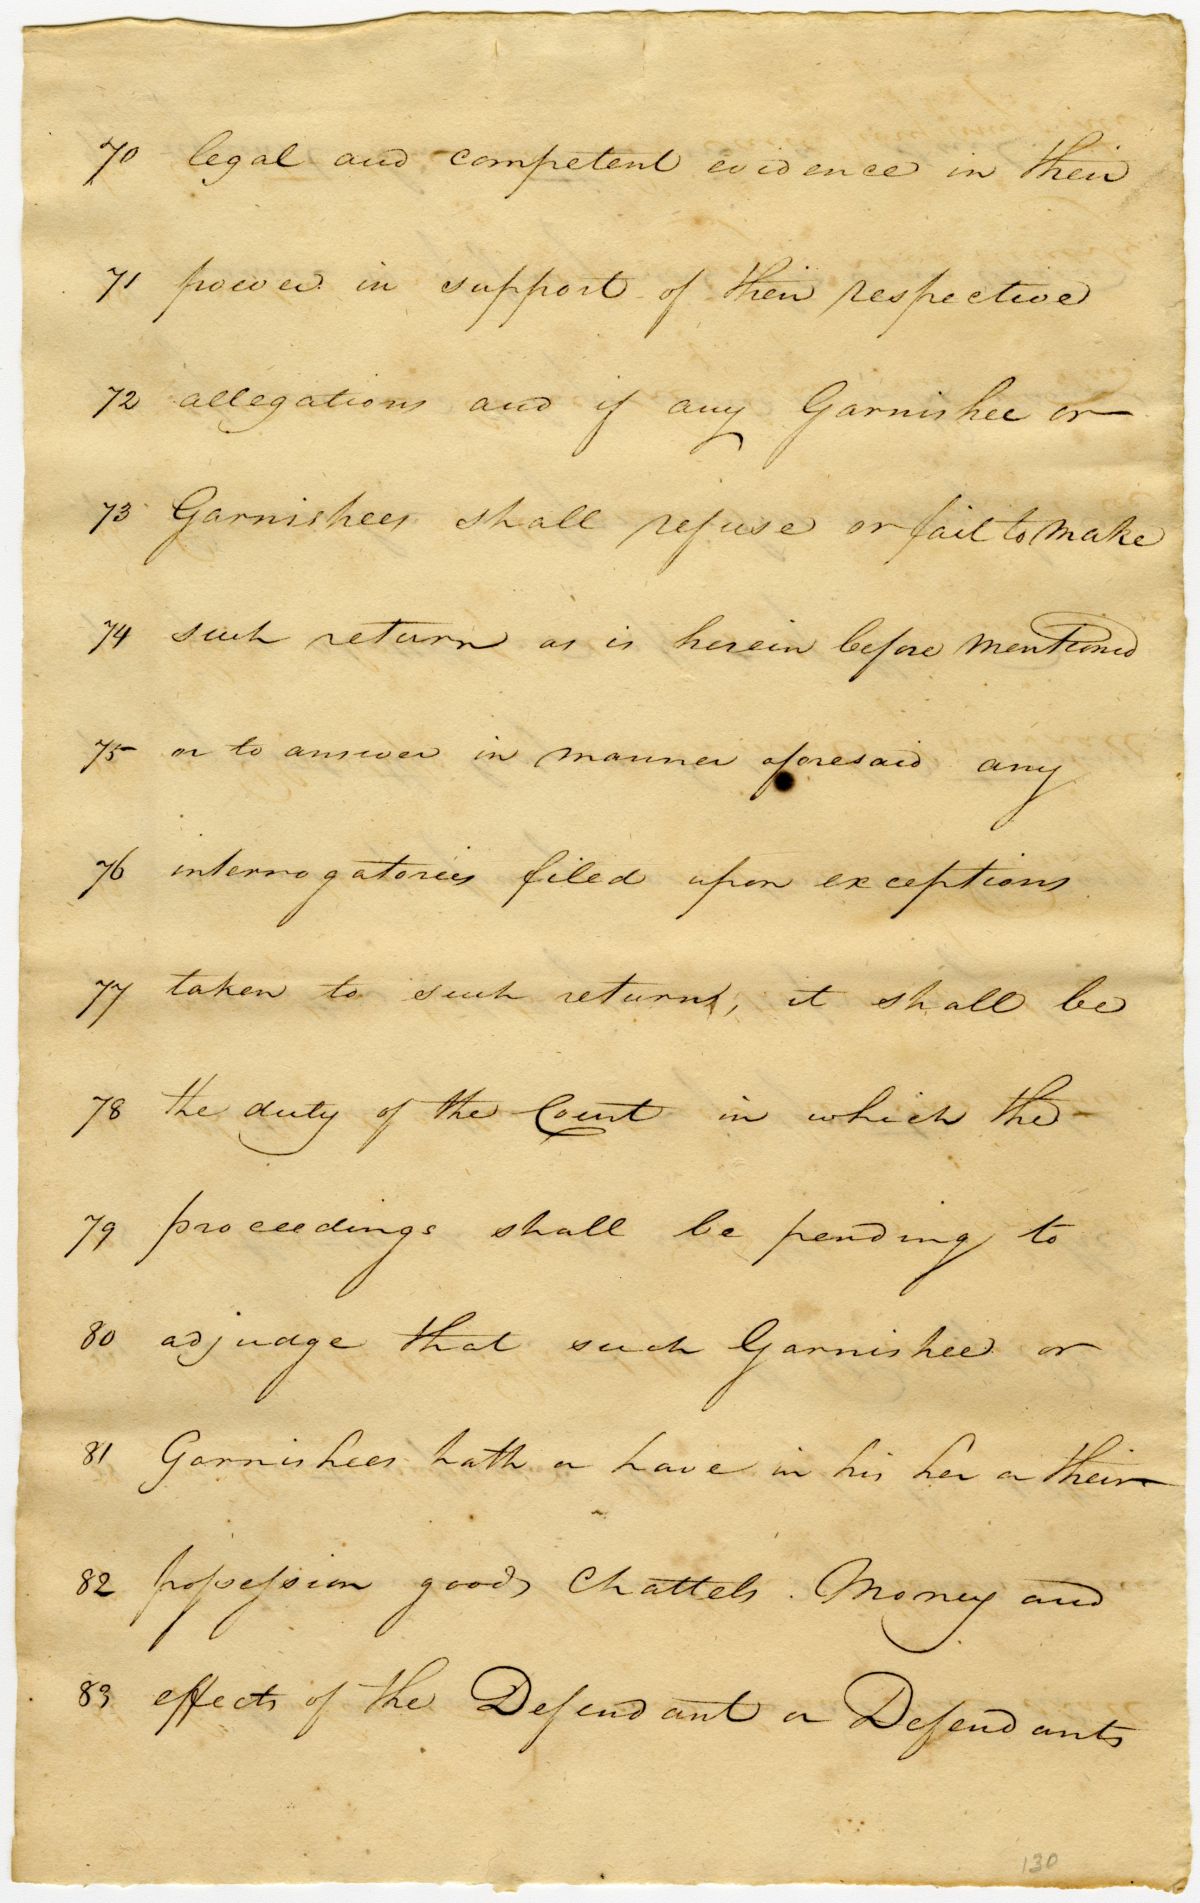 70 legal and competent evidence in their
71 power in support of their respective
72 allegations and if any Garnishee or
73 Garnishees shall refuse or fail to make
74 such return as is herein before mentioned
75 or to answer in manner aforesaid any
76 interrogatories filed upon exceptions
77 taken to such return, it shall be
78 the duty of the Court in which the
79 proceedings shall be pending to
80 adjudge that such Garnishee or
81 Garnishees hath or have in his her or their
82 possession goods Chattels. Money and
83 effects of the Defendant or Defendants
130